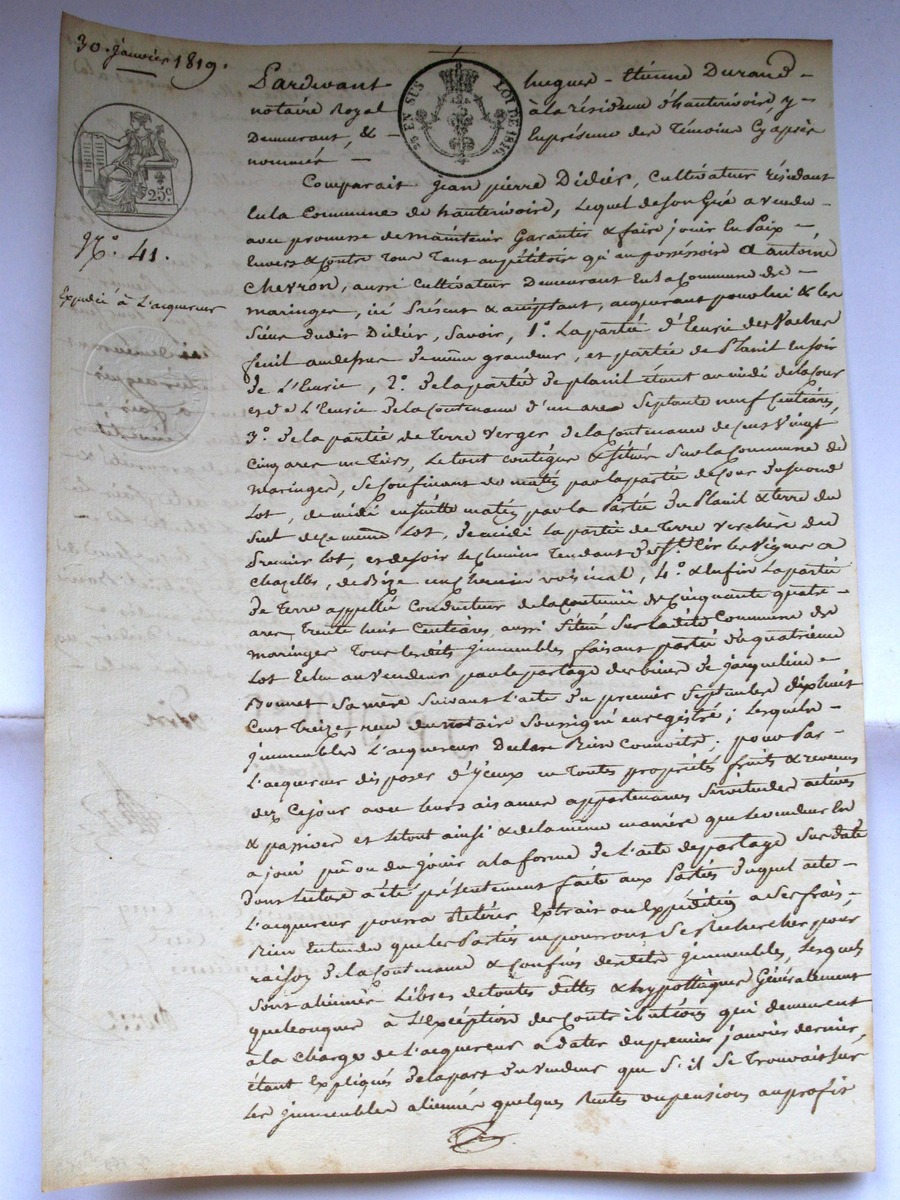 30. janvier 1819.
Pardevant hugues - étienne Durand -
notaire Royal à la résidence d'hauterivoire y -
Demeurant, & En présence des Témoins Cy après
nommés -
EN SUS LOI DE 1816
25c
N.° 41.
Expédié à L'acquereur
Comparait Jean pierre Didier, Cultivateur résidant
En la Commune de hauterivoire, Lequel de son Gré a vendu
avec promesse de maintenir Garantir & faire jouir En Paix -,
Envers & Contre Tous Tant au pétitoire qu'au possessoire a antoine
Chevron, aussi Cultivateur Demeurant En la Commune de -
maringes, ici Présent & acceptant, acquerant pour lui & les
Siens dudit Didier, Savoir, 1.° La partie d'Ecurie des Vaches
fenil au dessus de même grandeur, et partie de Planil En soir
de L'Ecurie, 2.° de la partie de planil étant au midi de la Cour
et de L'Ecurie de la Contenance d'un are Septante neuf Centiares,
3.° de la partie de Terre Verger de la Contenance de Cens Vingt
Cinq ares un Tiers, Le tout contigue & situé Sur la Commune de
maringes, Se Confinant de matin par la partie de Cour du second
Lot, de midi Ensuite matin par la Partie du Planil & terre du
Suel de ce même Lot, de midi La partie de Terre Verchère du
Premier Lot, et de soir Le Chemin Tendant de St. Cir les Vignes a
Chazelles, de Bize un Chemin voisinal, 4.° & Enfin La partie
de Terre appellée Conducteur de la Contenue de Cinquante quatre
ares Trente huit Centiares, aussi Situé Sur la dite Commune de
maringes Tous lesdits immeubles faisant partie du quatrième
Lot Echu au Vendeur par le partage des biens de jacqueline -
Bonnet Sa mère Suivant L'acte du premier Septembre dix huit
Cent Treize, reçu du notaire Soussigné enregistré; Lesquels -
immeubles L'acquereur Declare Bien Connoitre; pour Par -
L'acquereur disposer d'Yceux En Toutes propriétés fruits & revenus
dez Cejour avec leurs aisances appartenances Servitudes actives
& passives et Le tout ainsi & de la même manière que Le vendeur En
a joui pû ou du jouir a la forme de L'acte de partage Sus daté
dont Lecture a été présentement faite aux Parties duquel acte -
L'acquereur pourra Retirer Extrait ou Expédition a Ses frais,
Bien Entendu que les Parties ne pourront Se Rechercher pour
raison de la Contenance & Confins desdits immeubles, Lesquels
Sont aliénés Libres de toutes dettes & hypottèques Généralement
quelconques à L'Exception des Contributions qui demeurent
à la Charge de L'acquereur a dater du premier janvier dernier,
étant Expliqué de la part du Vendeur que S'il Se Trouvait Sur
Les immeubles aliénés quelques Rentes ou pensions au profit